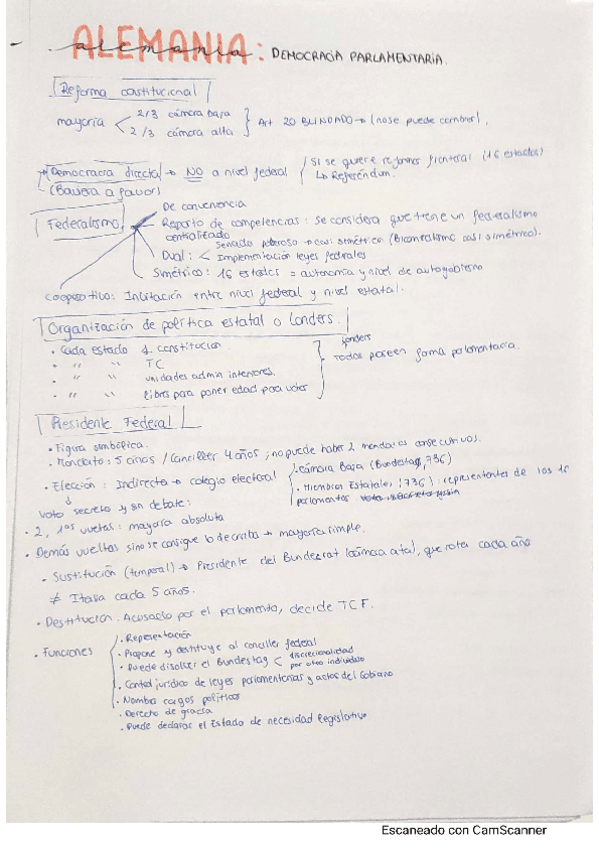 ALEMANIA: DEMOCRACIA PARLAMENTARIA.
alemania
Reforma constitucional
mayoría < 2/3 cámara baja
2/3 cámara alta } Art 20 BLINDADO → (no se puede cambiar).
→ Democracia directa → NO a nivel federal / Si se quiere reformar fronteras (16 estados)
(Baviera a favor) ↳ Referéndum.
De conveniencia
Federalismo Reparto de competencias: se considera que tiene un federalismo
centralizado
Senado poderoso → casi simétrico (Bicameralismo casi simétrico).
Dual: < Implementación leyes federales
Simétrico: 16 estados = autonomía y nivel de autogobierno
cooperativo: entre nivel federal y nivel estatal.
Organización de política estatal o Landers.
· Cada estado 1 constitución
· " " TC
· " " unidades admin inferiores.
· " " libres para poner edad para votar
landers
Todos poseen forma parlamentaria.
Presidente Federal
· Figura simbólica.
· Mandato: 5 años / Canciller 4 años; no puede haber 2 mandatos consecutivos.
· Elección: Indirecta → colegio electoral / · Cámara Baja (Bundestag, 736)
· Miembros Estatales (736): representantes de los 16
parlamentos
voto secreto y sin debate:
· 2, 1as vueltas: mayoría absoluta
· Demás vueltas sino se consigue lo de arriba → mayoría simple.
· Sustitución (temporal) → Presidente del Bundesrat (cámara alta), que rota cada año
≠ Italia cada 5 años.
· Destitución. Acusado por el parlamento, decide TCF.
· Funciones
· Representación
· Propone y destituye al canciller federal
· Puede disolver el Bundestag < discrecionalidad
por otro individuo
· Control jurídico de leyes parlamentarias y actos del Gobierno
· Nombra cargos políticos
· Derecho de gracia
· Puede declarar el Estado de necesidad legislativo
Escaneado con CamScanner